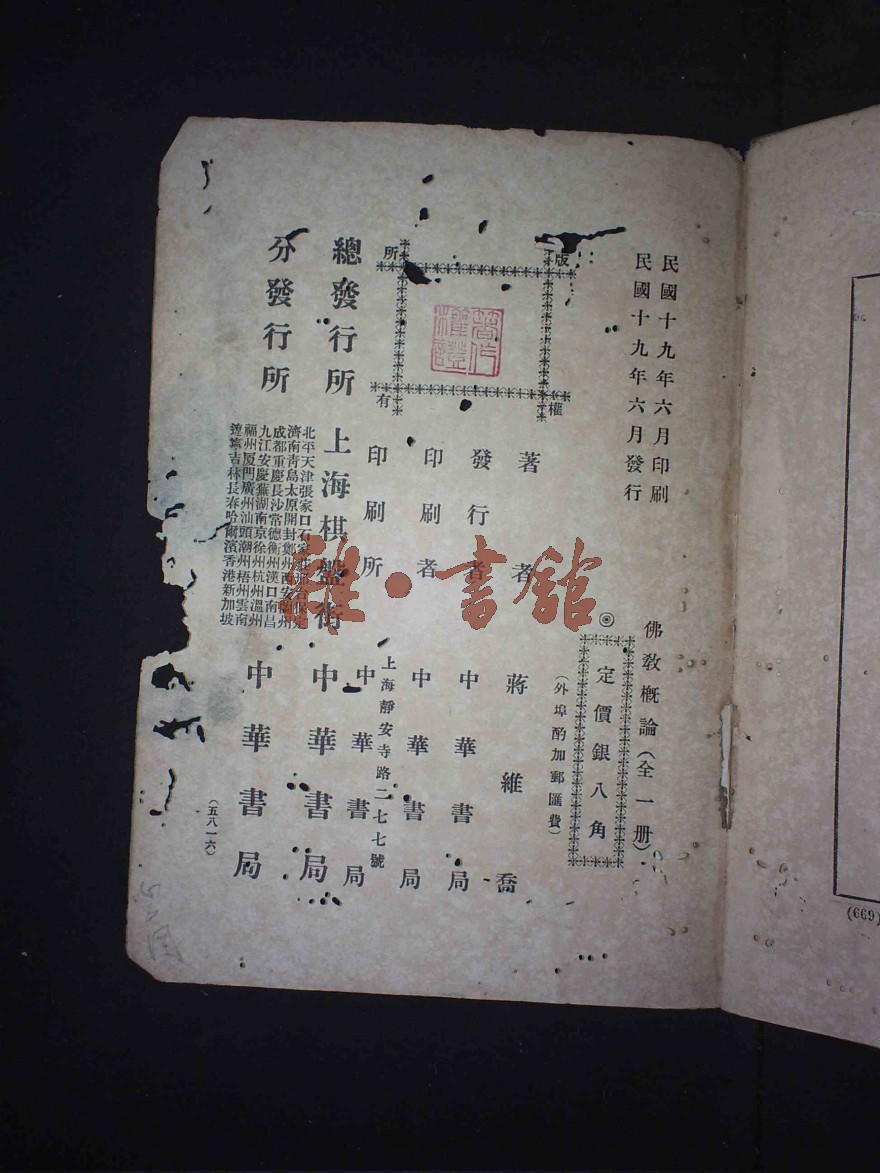 民國十九年六月印刷
民國十九年六月發行
佛敎槪論(全一册)
◎定價銀八角
(外埠酌加郵匯費)
版權所有
著作權證
著者 蔣維喬
發行者 中華書局
印刷者 中華書局
上海靜安寺路二七七號
印刷所 中華書局
總發行所 上海棋盤街 中華書局
分發行所 中華書局
北平天津張家口石家
保定
濟南靑島太原開封鄭州西安蘭州
成都重慶長沙常德衡州漢口南昌
九江安慶蕪湖南京徐州杭州溫州
福州厦門廣州汕頭潮州梧州雲南
遼寧吉林長春哈爾濱香港新加坡
(五八一六)
雜·書館
(669)